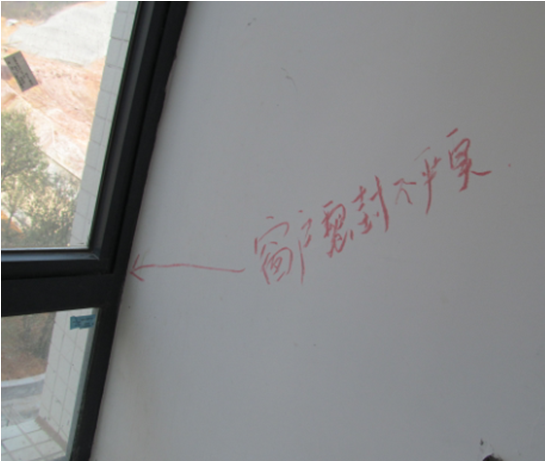 窗户密封不严实